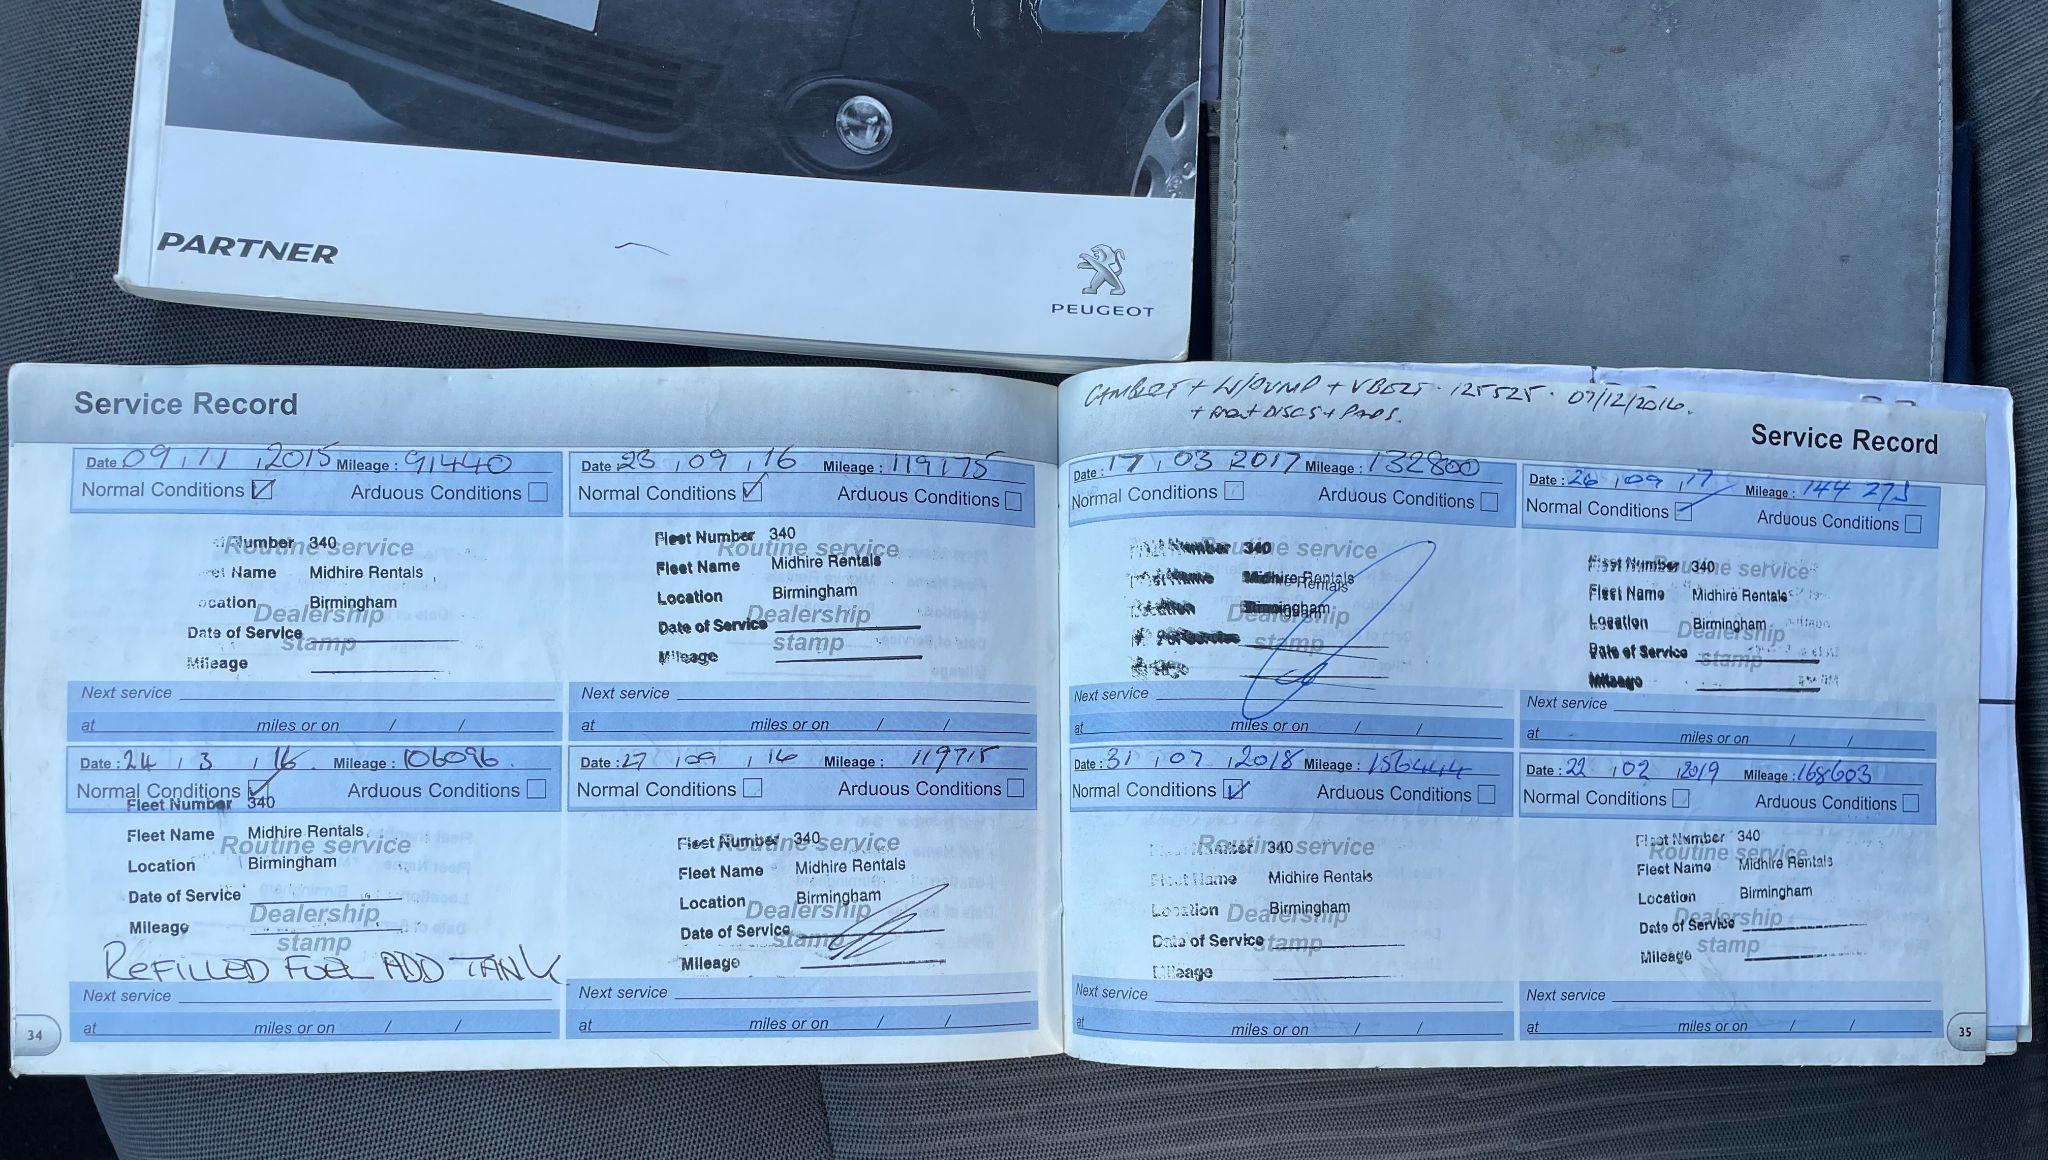 PARTNER
PEUGEOT
Service Record
Date 09 / 11 / 2015 Mileage : 91440
Normal Conditions Arduous Conditions
Routine service
Number 340
Name Midhire Rentals
Location Birmingham
Dealership
Date of Service
stamp
Mileage
Next service
at miles or on / /
Date 23 / 09 / 16 Mileage : 119175
Normal Conditions Arduous Conditions
Fleet Number 340
Routine service
Fleet Name Midhire Rentals
Location Birmingham
Dealership
Date of Service
stamp
Mileage
Next service
at miles or on / /
Date : 24 / 3 / 16 Mileage : 106096
Normal Conditions Arduous Conditions
Fleet Number 340
Fleet Name Midhire Rentals
Routine service
Location Birmingham
Date of Service
Dealership
Mileage
stamp
REFILLED FUEL ADD TANK
Next service
at miles or on / /
Date : 27 / 09 / 16 Mileage : 119715
Normal Conditions Arduous Conditions
Fleet Number 340
Routine service
Fleet Name Midhire Rentals
Location Birmingham
Dealership
Date of Service
stamp
Mileage
Next service
at miles or on / /
34
CAMBELT + W/PUMP + VBELT · 125525 · 07/12/2016.
+ FRONT DISCS + PADS.
Service Record
Date : 17 / 03 2017 Mileage : 132800
Normal Conditions Arduous Conditions
Number 340
Routine service
Midhire Rentals
Rentals
Birmingham
Dealership
stamp
Next service
at miles or on / /
Date : 26 / 09 / 17 Mileage : 144 275
Normal Conditions Arduous Conditions
Fleet Number 340
Routine service
Fleet Name Midhire Rentals
Location Birmingham
Dealership
Date of Service
stamp
Mileage
Next service
at miles or on / /
Date : 31 / 07 / 2018 Mileage : 156444
Normal Conditions Arduous Conditions
Number 340
Routine service
Fleet Name Midhire Rentals
Location Birmingham
Dealership
Date of Service
stamp
Mileage
Next service
at miles or on / /
Date : 22 / 02 / 2019 Mileage : 168603
Normal Conditions Arduous Conditions
Fleet Number 340
Routine service
Fleet Name Midhire Rentals
Location Birmingham
Dealership
Date of Service
stamp
Mileage
Next service
at miles or on / /
35